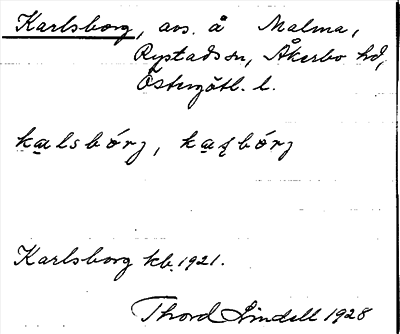 Karlsborg, avs. å Malma,
Rystads sn, Åkerbo hd,
Östergötl. l.
kalsbórj, kaʂbórj
Karlsborg kb. 1921.
Thord Lindell 1928